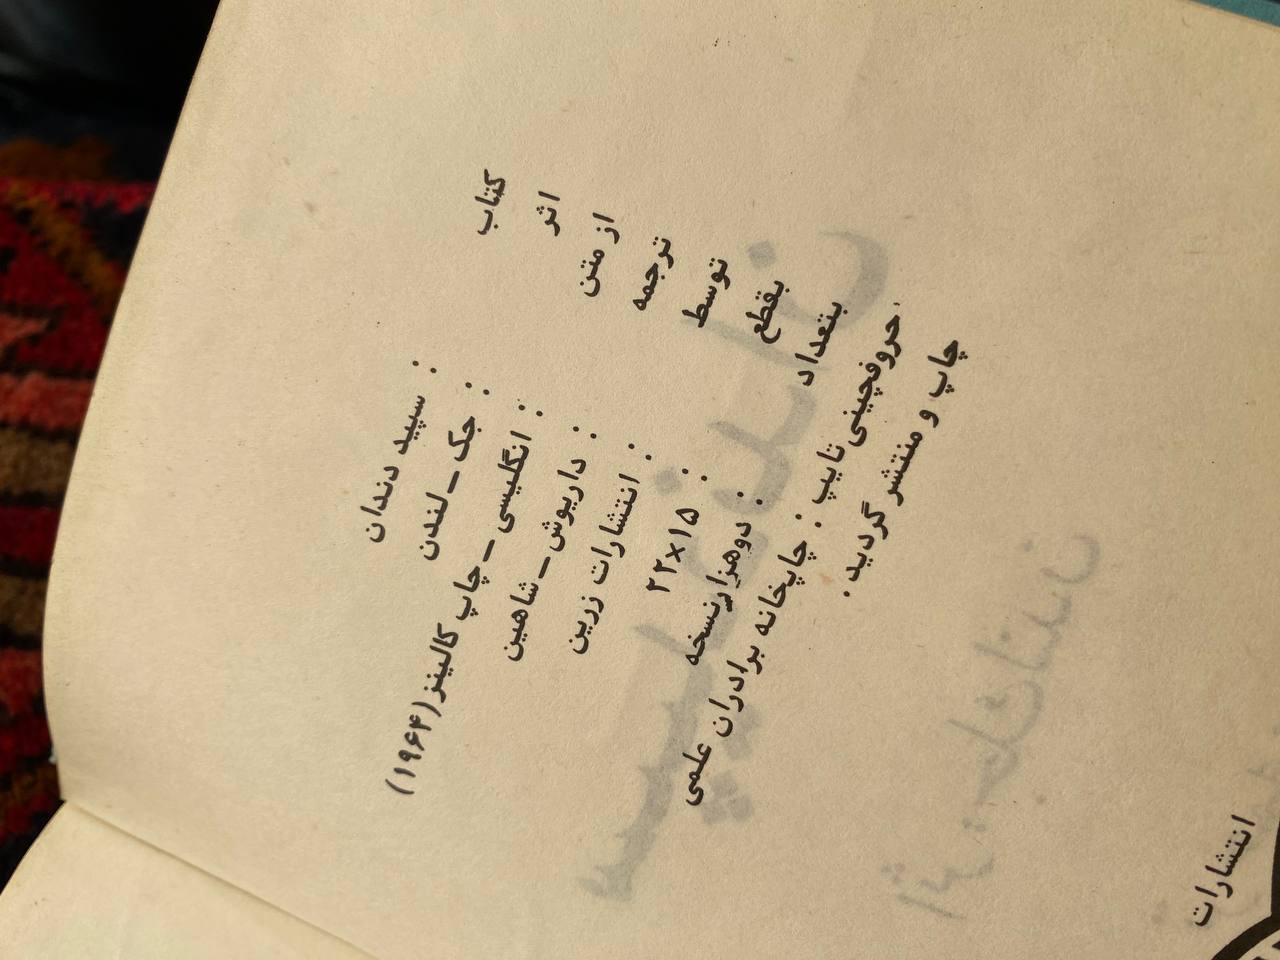 کتاب : سپید دندان
اثر : جک ـ لندن
از متن : انگلیسی ـ چاپ کالینز (۱۹۶۴)
ترجمه : داریوش ـ شاهین
توسط : انتشارات زرین
بقطع : ۲۲×۱۵
بتعداد : دوهزار نسخه
حروفچینی تایپ : چاپخانه برادران علمی
چاپ و منتشر گردید .
انتشارات